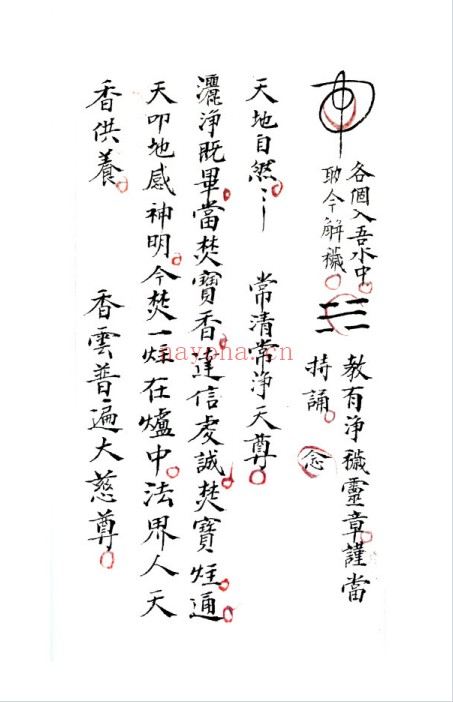 各個入吾水中
今解穢
教有淨穢靈章謹當
持誦 念
天地自然 常清常淨天尊
灑淨既畢當焚寶香達信虔誠焚寶炷通
天叩地感神明今焚一炷在爐中法界人天
香供養 香雲普遍大慈尊
nayona.cn